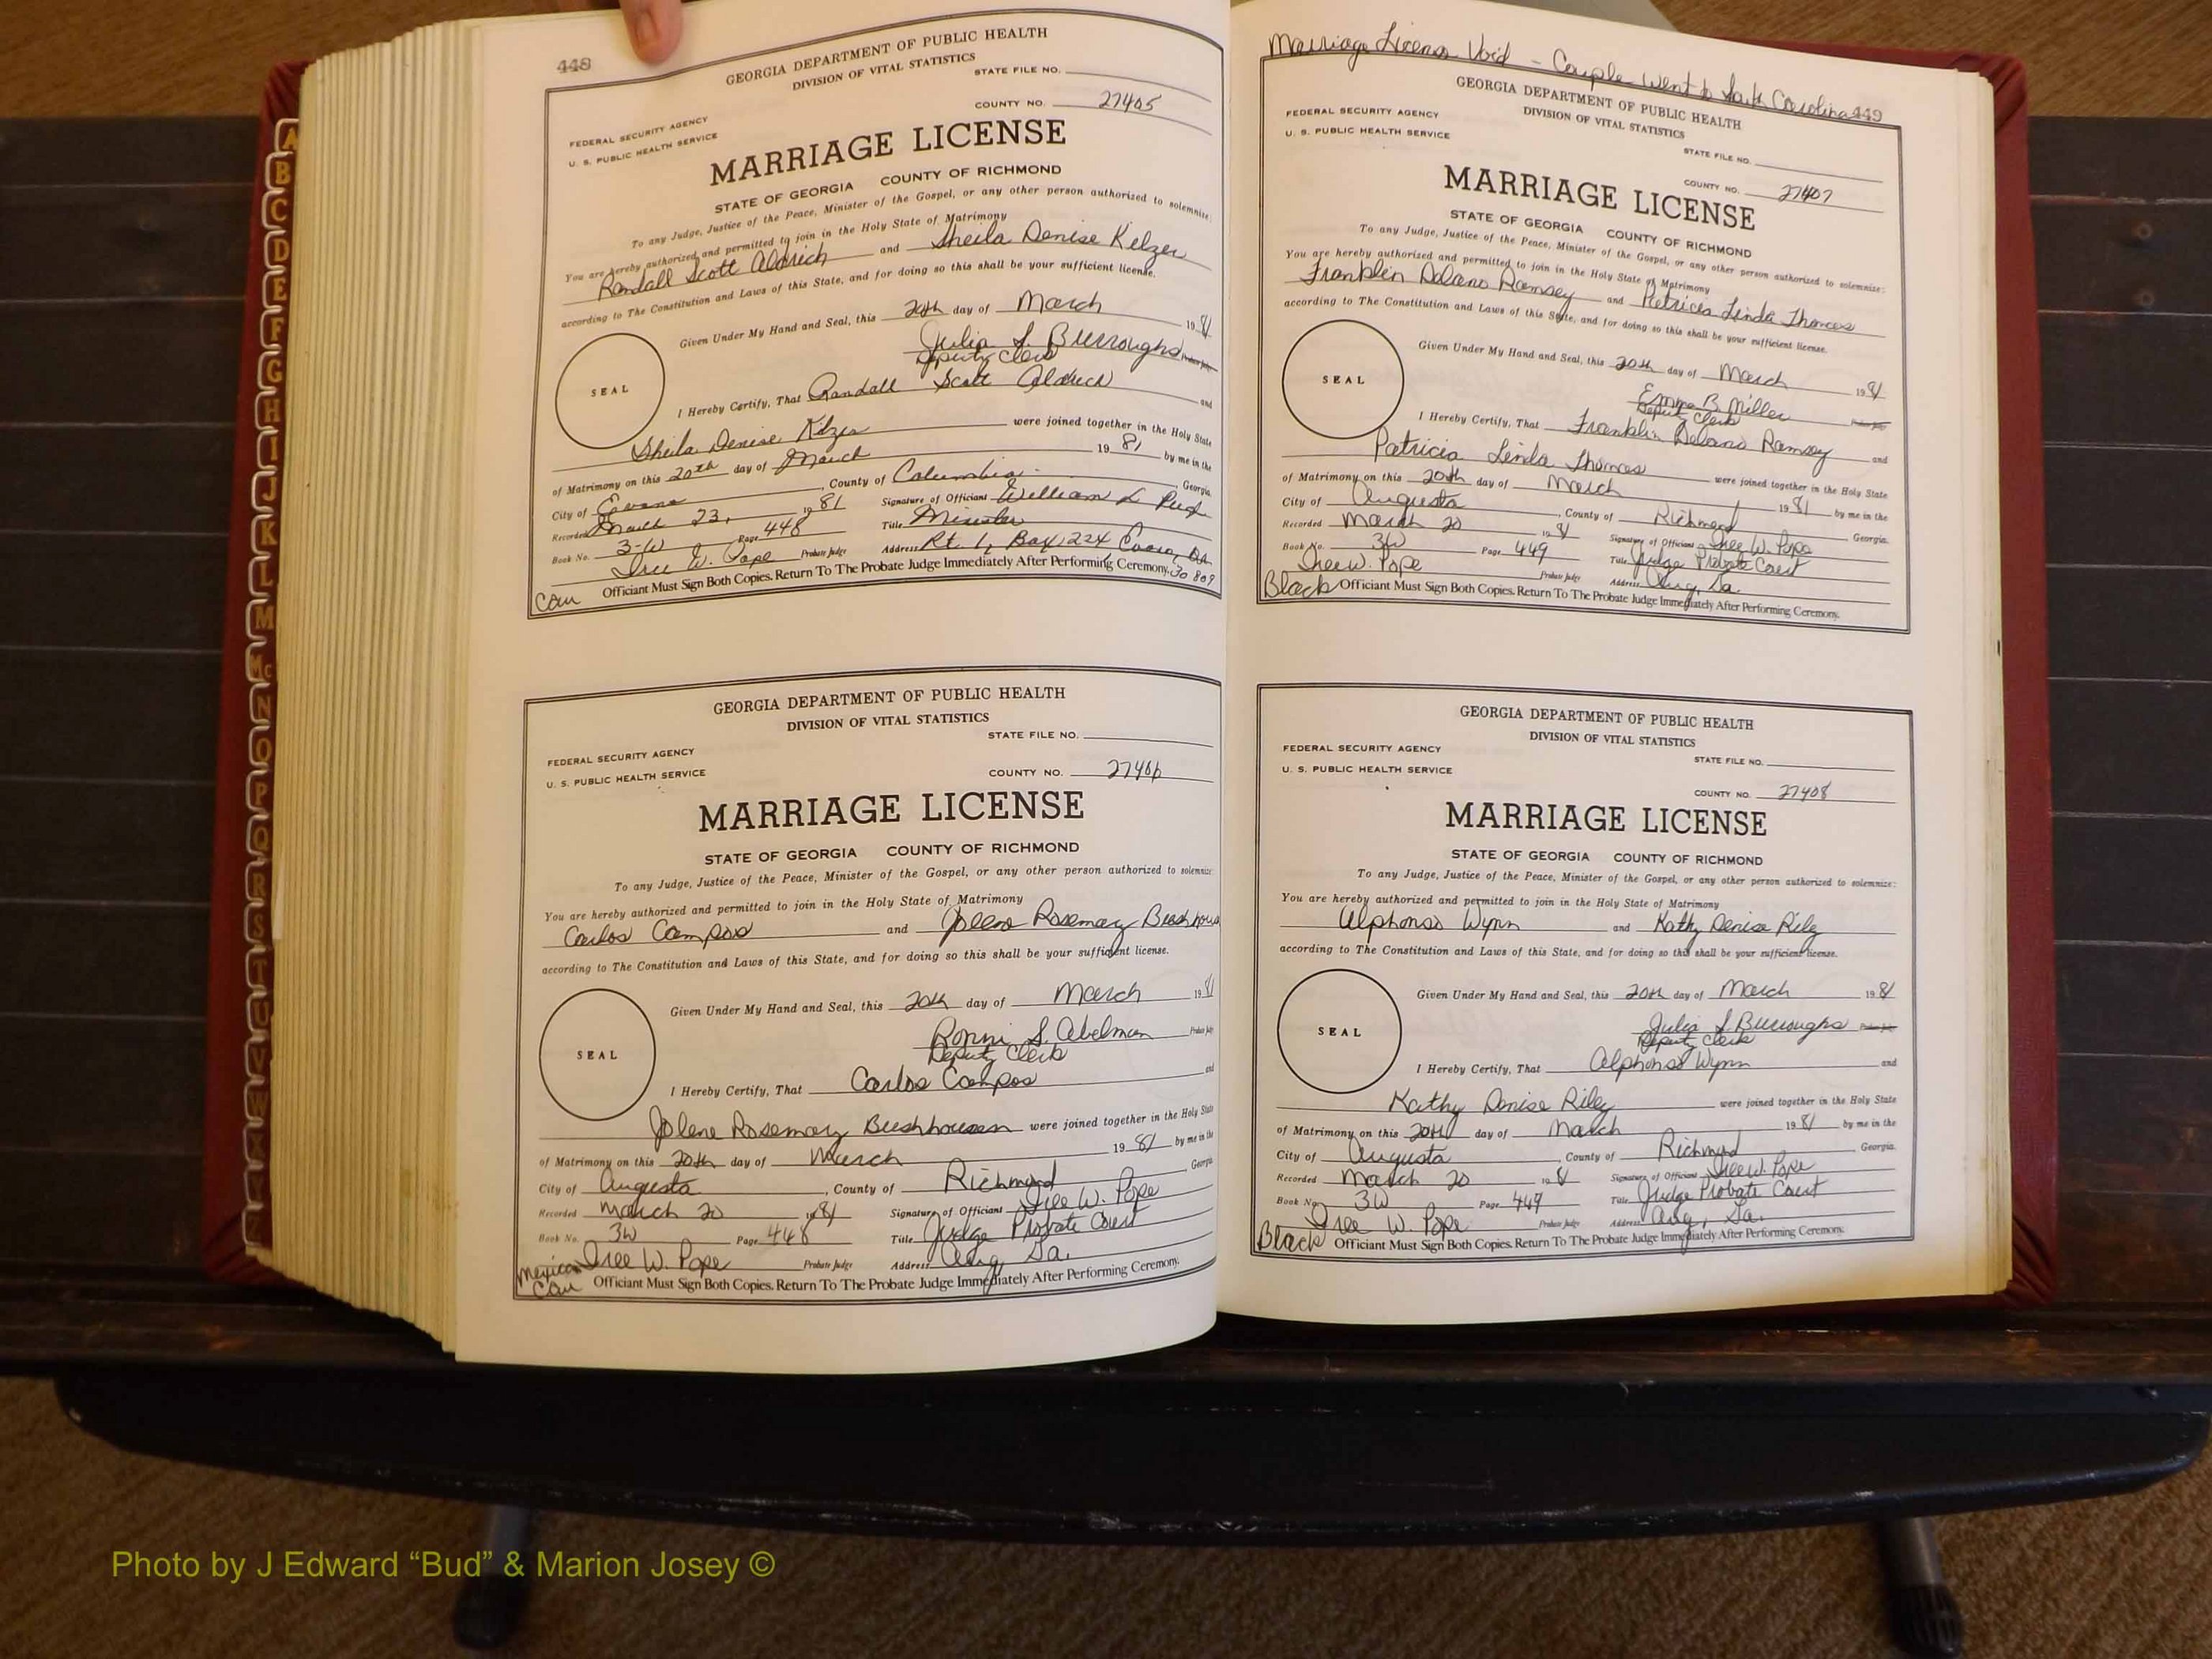 448
GEORGIA DEPARTMENT OF PUBLIC HEALTH
DIVISION OF VITAL STATISTICS
STATE FILE NO.
COUNTY NO. 27405
FEDERAL SECURITY AGENCY
U. S. PUBLIC HEALTH SERVICE
MARRIAGE LICENSE
STATE OF GEORGIA COUNTY OF RICHMOND
To any Judge, Justice of the Peace, Minister of the Gospel, or any other person authorized to solemnize:
You are hereby authorized and permitted to join in the Holy State of Matrimony
Randall Scott Aldrich and Sheila Denise Kelzer
according to The Constitution and Laws of this State, and for doing so this shall be your sufficient license.
Given Under My Hand and Seal, this 20th day of March 1981
Julia S. Burroughs
Deputy Clerk
SEAL
I Hereby Certify, That Randall Scott Aldrich and
Sheila Denise were joined together in the Holy State
of Matrimony on this 20th day of March 1981 by me in the
City of Evans, County of Columbia, Georgia
Recorded March 23, 1981 Signature of Officiant William L
Book No. 3-W Page 448 Title Minister
Probate Judge Address Rt. 1, Box 224 30809
W. Pope
Cau Officiant Must Sign Both Copies. Return To The Probate Judge Immediately After Performing Ceremony.
GEORGIA DEPARTMENT OF PUBLIC HEALTH
DIVISION OF VITAL STATISTICS
STATE FILE NO.
FEDERAL SECURITY AGENCY
U. S. PUBLIC HEALTH SERVICE
COUNTY NO. 27406
MARRIAGE LICENSE
STATE OF GEORGIA COUNTY OF RICHMOND
To any Judge, Justice of the Peace, Minister of the Gospel, or any other person authorized to solemnize:
You are hereby authorized and permitted to join in the Holy State of Matrimony
Carlos Campos and Jolene Rosemary Bushhous
according to The Constitution and Laws of this State, and for doing so this shall be your sufficient license.
Given Under My Hand and Seal, this 20th day of March 1981
Ronni S. Abelman Probate Judge
Deputy Clerk
SEAL
I Hereby Certify, That Carlos Campos and
Jolene Rosemary Bushhousen were joined together in the Holy State
of Matrimony on this 20th day of March 1981 by me in the
City of Augusta, County of Richmond Georgia
Recorded March 20 1981 Signature of Officiant Iree W. Pope
Book No. 3W Page 448 Title Judge Probate Court
Iree W. Pope Probate Judge Address Aug, Ga.
Mexican
Cau Officiant Must Sign Both Copies. Return To The Probate Judge Immediately After Performing Ceremony.
Marriage License Void - Couple went to South Carolina 449
GEORGIA DEPARTMENT OF PUBLIC HEALTH
DIVISION OF VITAL STATISTICS
FEDERAL SECURITY AGENCY
U. S. PUBLIC HEALTH SERVICE
STATE FILE NO.
COUNTY NO. 27407
MARRIAGE LICENSE
STATE OF GEORGIA COUNTY OF RICHMOND
To any Judge, Justice of the Peace, Minister of the Gospel, or any other person authorized to solemnize:
You are hereby authorized and permitted to join in the Holy State of Matrimony
Franklin Delano Ramsey and Patricia Linda Thomas
according to The Constitution and Laws of this State, and for doing so this shall be your sufficient license.
Given Under My Hand and Seal, this 20th day of March 1981
Emma B Miller
Deputy Clerk
SEAL
I Hereby Certify, That Franklin Delano Ramsey and
Patricia Linda Thomas were joined together in the Holy State
of Matrimony on this 20th day of March 1981 by me in the
City of Augusta, County of Richmond Georgia.
Recorded March 20 1981 Signature of Officiant Iree W. Pope
Book No. 3W Page 449 Title Judge Probate Court
Iree W. Pope Probate Judge Address Aug, Ga.
Black Officiant Must Sign Both Copies. Return To The Probate Judge Immediately After Performing Ceremony.
GEORGIA DEPARTMENT OF PUBLIC HEALTH
DIVISION OF VITAL STATISTICS
FEDERAL SECURITY AGENCY
STATE FILE NO.
U. S. PUBLIC HEALTH SERVICE
COUNTY NO. 27408
MARRIAGE LICENSE
STATE OF GEORGIA COUNTY OF RICHMOND
To any Judge, Justice of the Peace, Minister of the Gospel, or any other person authorized to solemnize:
You are hereby authorized and permitted to join in the Holy State of Matrimony
Alphonso Wynn and Kathy Denise Riley
according to The Constitution and Laws of this State, and for doing so this shall be your sufficient license.
Given Under My Hand and Seal, this 20th day of March 1981
Julia S. Burroughs
Deputy Clerk
SEAL
I Hereby Certify, That Alphonso Wynn and
Kathy Denise Riley were joined together in the Holy State
of Matrimony on this 20th day of March 1981 by me in the
City of Augusta, County of Richmond Georgia.
Recorded March 20 1981 Signature of Officiant Iree W. Pope
Book No. 3W Page 449 Title Judge Probate Court
Iree W. Pope Probate Judge Address Aug, Ga.
Black Officiant Must Sign Both Copies. Return To The Probate Judge Immediately After Performing Ceremony.
A
B
C
D
E
F
G
H
I
J
K
L
M
Mc
N
O
P
Q
R
S
T
U
V
W
Photo by J Edward “Bud” & Marion Josey ©